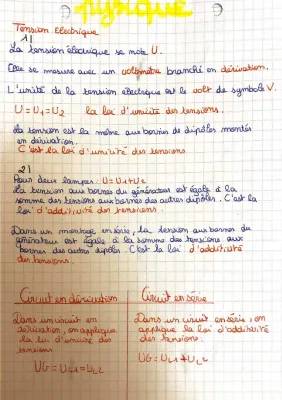 Physique
Tension électrique
1)
La tension électrique se note U.
Elle se mesure avec un voltmètre branché en dérivation.
L'unité de la tension électrique est le volt de symbole V.
U = U1 = U2 la loi d'unicité des tensions.
La tension est la même aux bornes de dipôles montés
en dérivation.
C'est la loi d'unicité des tensions
2)
Pour deux lampes: U = U1+U2
la tension aux bornes du générateur est égale à la
somme des tensions aux bornes des autres dipôles. C'est la
loi d'additivité des tensions.
Dans un montage en série, la tension aux bornes du
générateur est égale à la somme des tensions aux
bornes des autres dipôles. C'est la loi d'additivité
des tensions.
Circuit en dérivation
Dans un circuit en
dérivation, on applique
la loi d'unicité des
tensions
UG = UL1 = UL2
Circuit en série
Dans un circuit en série, on
applique la loi d'additivité
des tensions.
UG = UL1 + UL2